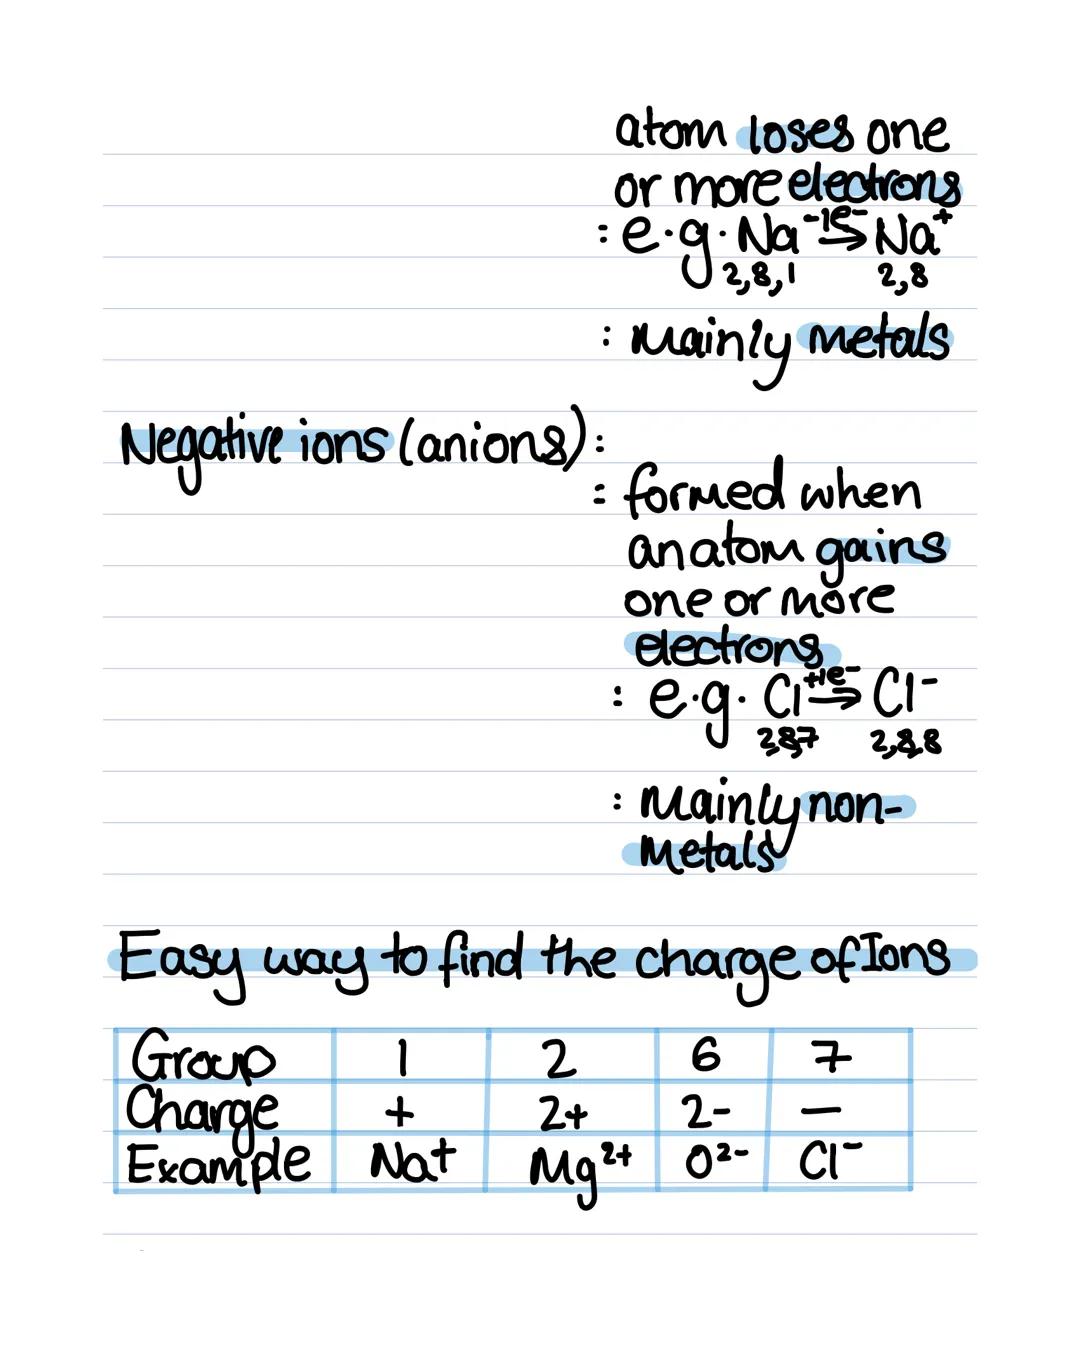 atom loses one
or more electrons
: e.g. Na -1e-→ Na+
2,8,1 2,8
: Mainly metals
Negative ions (anions):
: formed when
an atom gains
one or more
electrons
: e.g. Cl +1e-→ Cl-
2,8,7 2,8,8
: Mainly non-
Metals
Easy way to find the charge of Ions
Group 1 2 6 7
Charge + 2+ 2- -
Example Na+ Mg2+ O2- Cl-